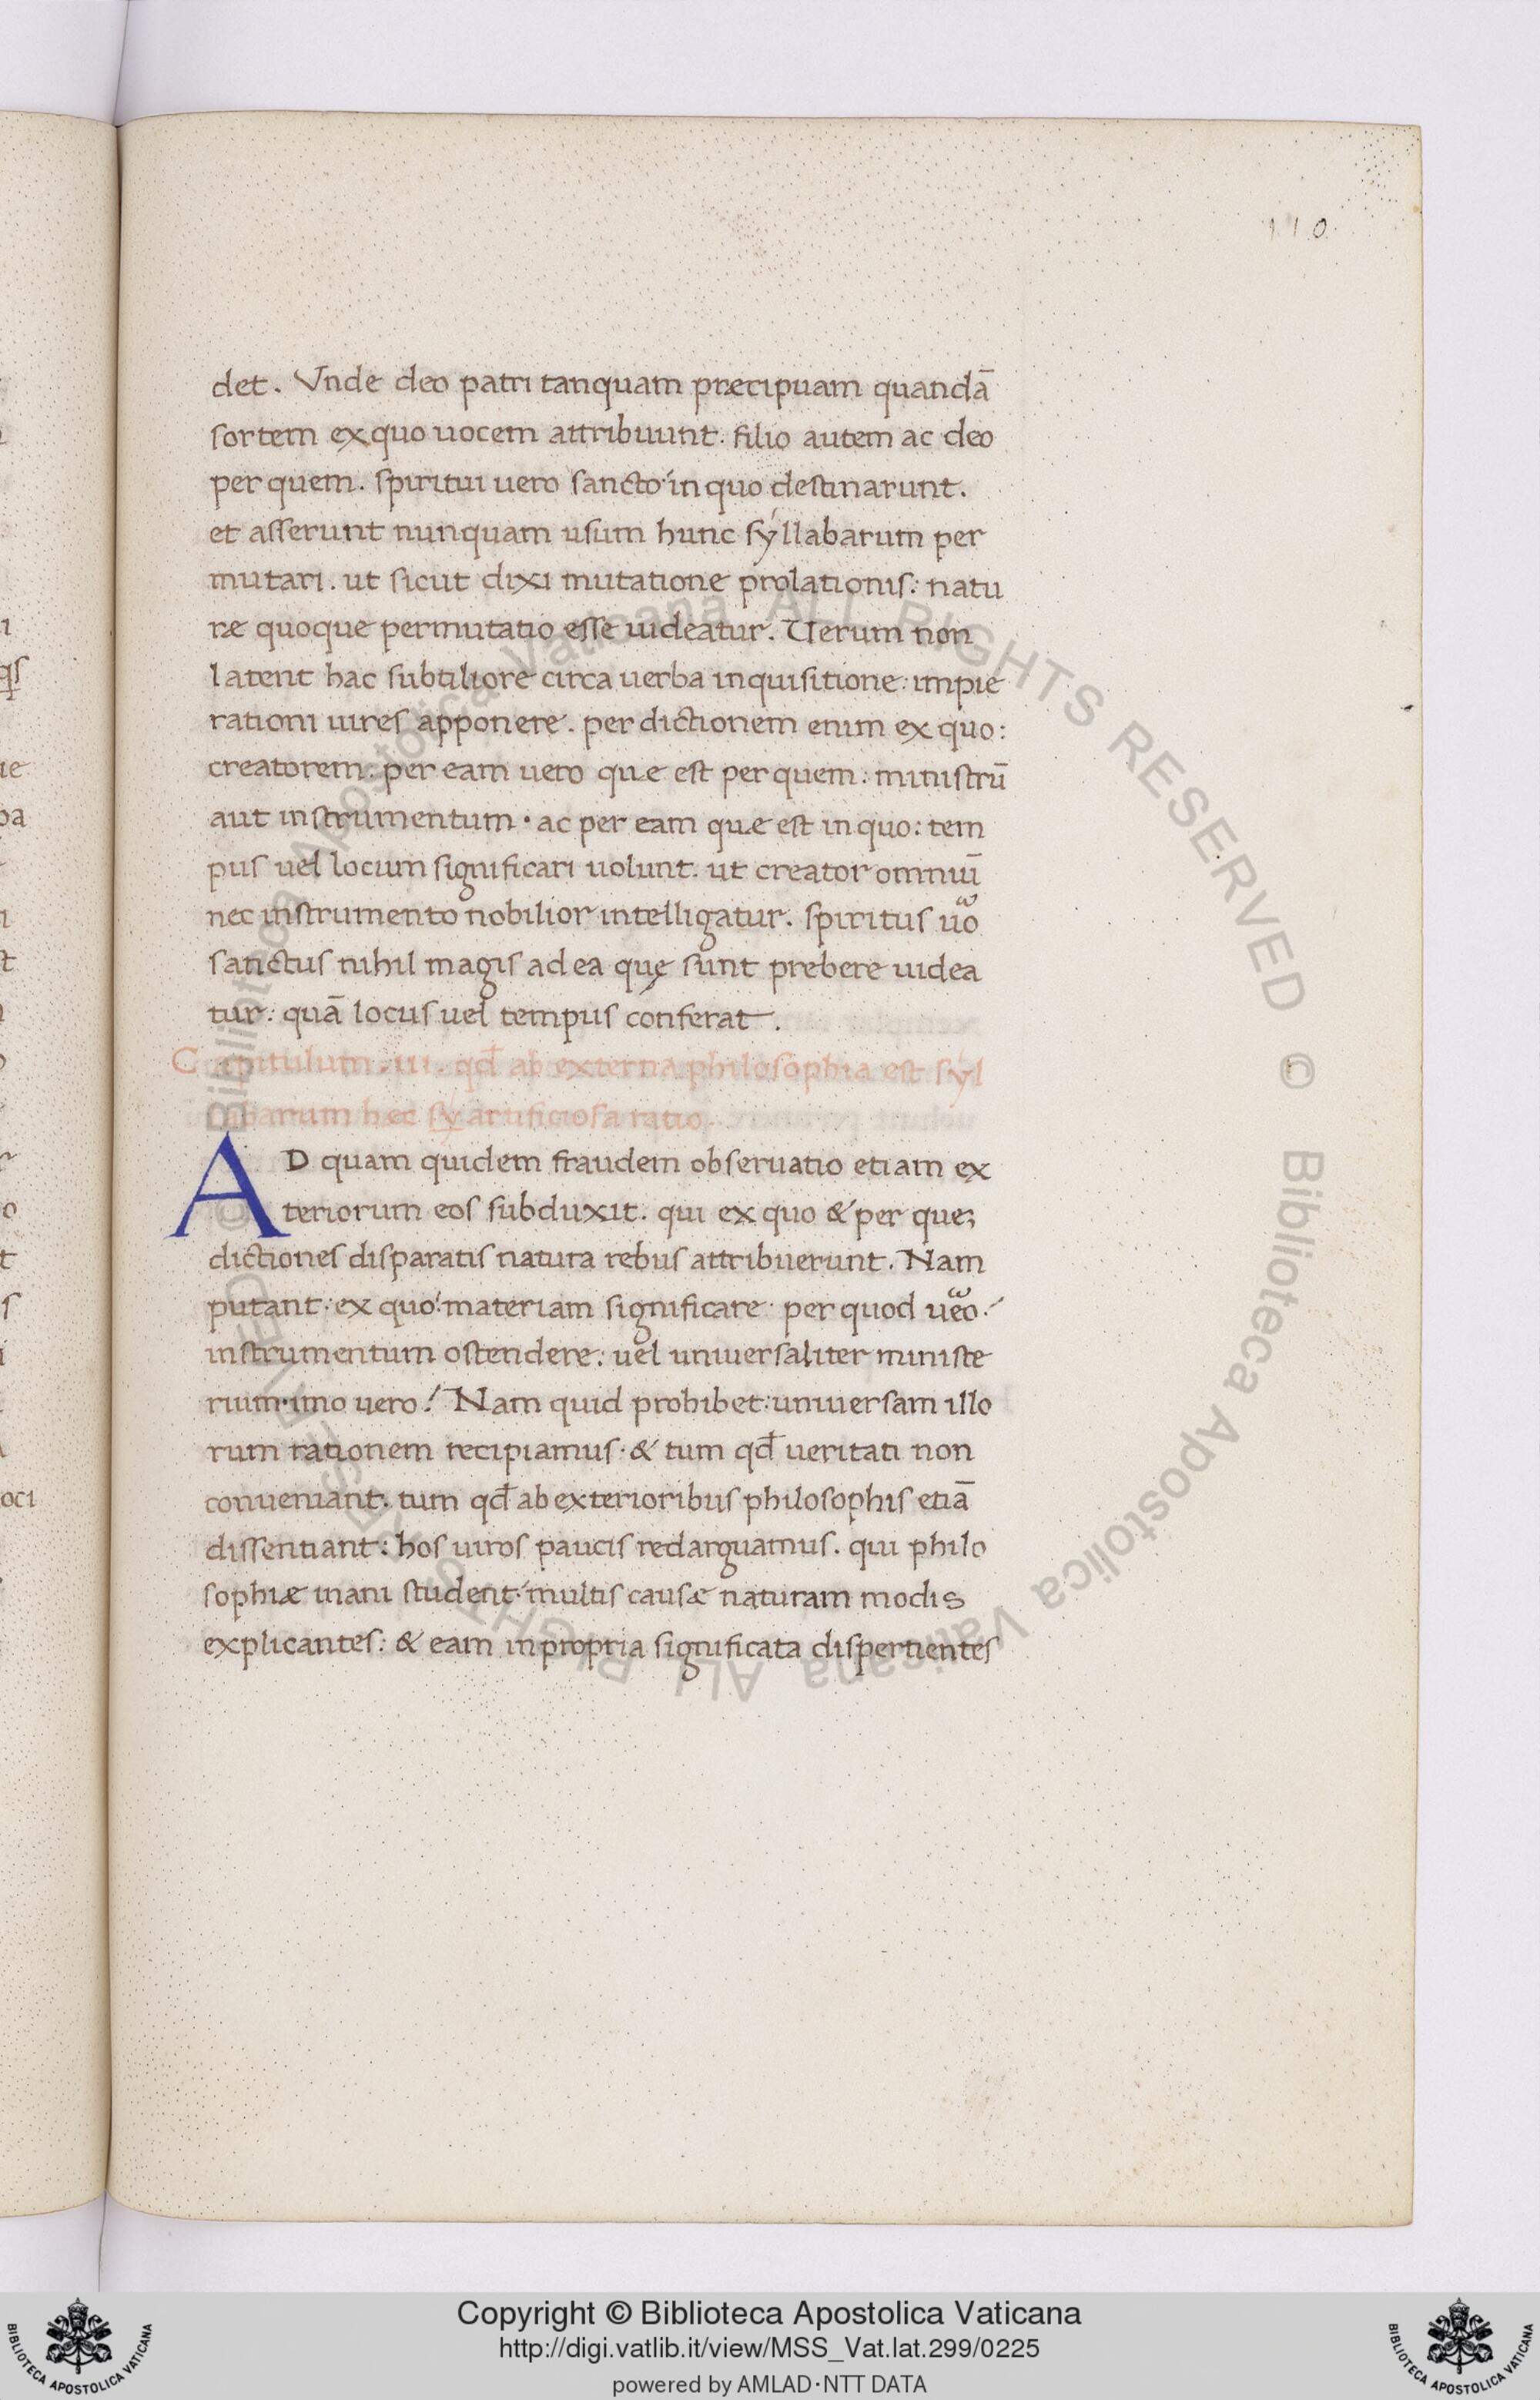 110
det. Vnde deo patri tanquam præcipuam quandā
sortem ex quo uocem attribuunt. filio autem ac deo
per quem. spiritui uero sancto in quo destinarunt.
et asserunt nunquam usum hunc syllabarum per
mutari. ut sicut dixi mutatione prolationis: natu
ræ quoque permutatio esse uideatur. Verum non
latent hac subtiliore circa uerba inquisitione: impie
rationi uires apponere. per dictionem enim ex quo:
creatorem: per eam uero que est per quem: ministrū
aut instrumentum. ac per eam que est in quo: tem
pus uel locum significari uolunt. ut creator omniū
nec instrumento nobilior intelligatur. spiritus u̅o
sanctus nihil magis ad ea quę sunt prebere uidea
tur: quā locus uel tempus conferat.
Capitulum .iii. qđ ab externa philosophia est syl
barum hæc sy artificiosa ratio.
AD quam quidem fraudem obseruatio etiam ex
teriorum eos subduxit. qui ex quo & per que;
dictiones disparatis natura rebus attribuerunt. Nam
putant: ex quo: materiam significare: per quod ueo:
instrumentum ostendere: uel uniuersaliter ministe
rium. imo uero! Nam quid prohibet: uniuersam illo
rum rationem recipiamus. & tum qđ ueritati non
conueniant. tum qđ ab exterioribus philosophis etiā
dissentiant: hos uiros paucis redarguamus. qui philo
sophiæ inani student. multis causæ naturam modis
explicantes: & eam in propria significata dispertientes
© Biblioteca Apostolica Vaticana ALL RIGHTS RESERVED
© Biblioteca Apostolica Vaticana ALL RIGHTS RESERVED
Copyright © Biblioteca Apostolica Vaticana
http://digi.vatlib.it/view/MSS_Vat.lat.299/0225
powered by AMLAD·NTT DATA
BIBLIOTECA APOSTOLICA VATICANA
BIBLIOTECA APOSTOLICA VATICANA